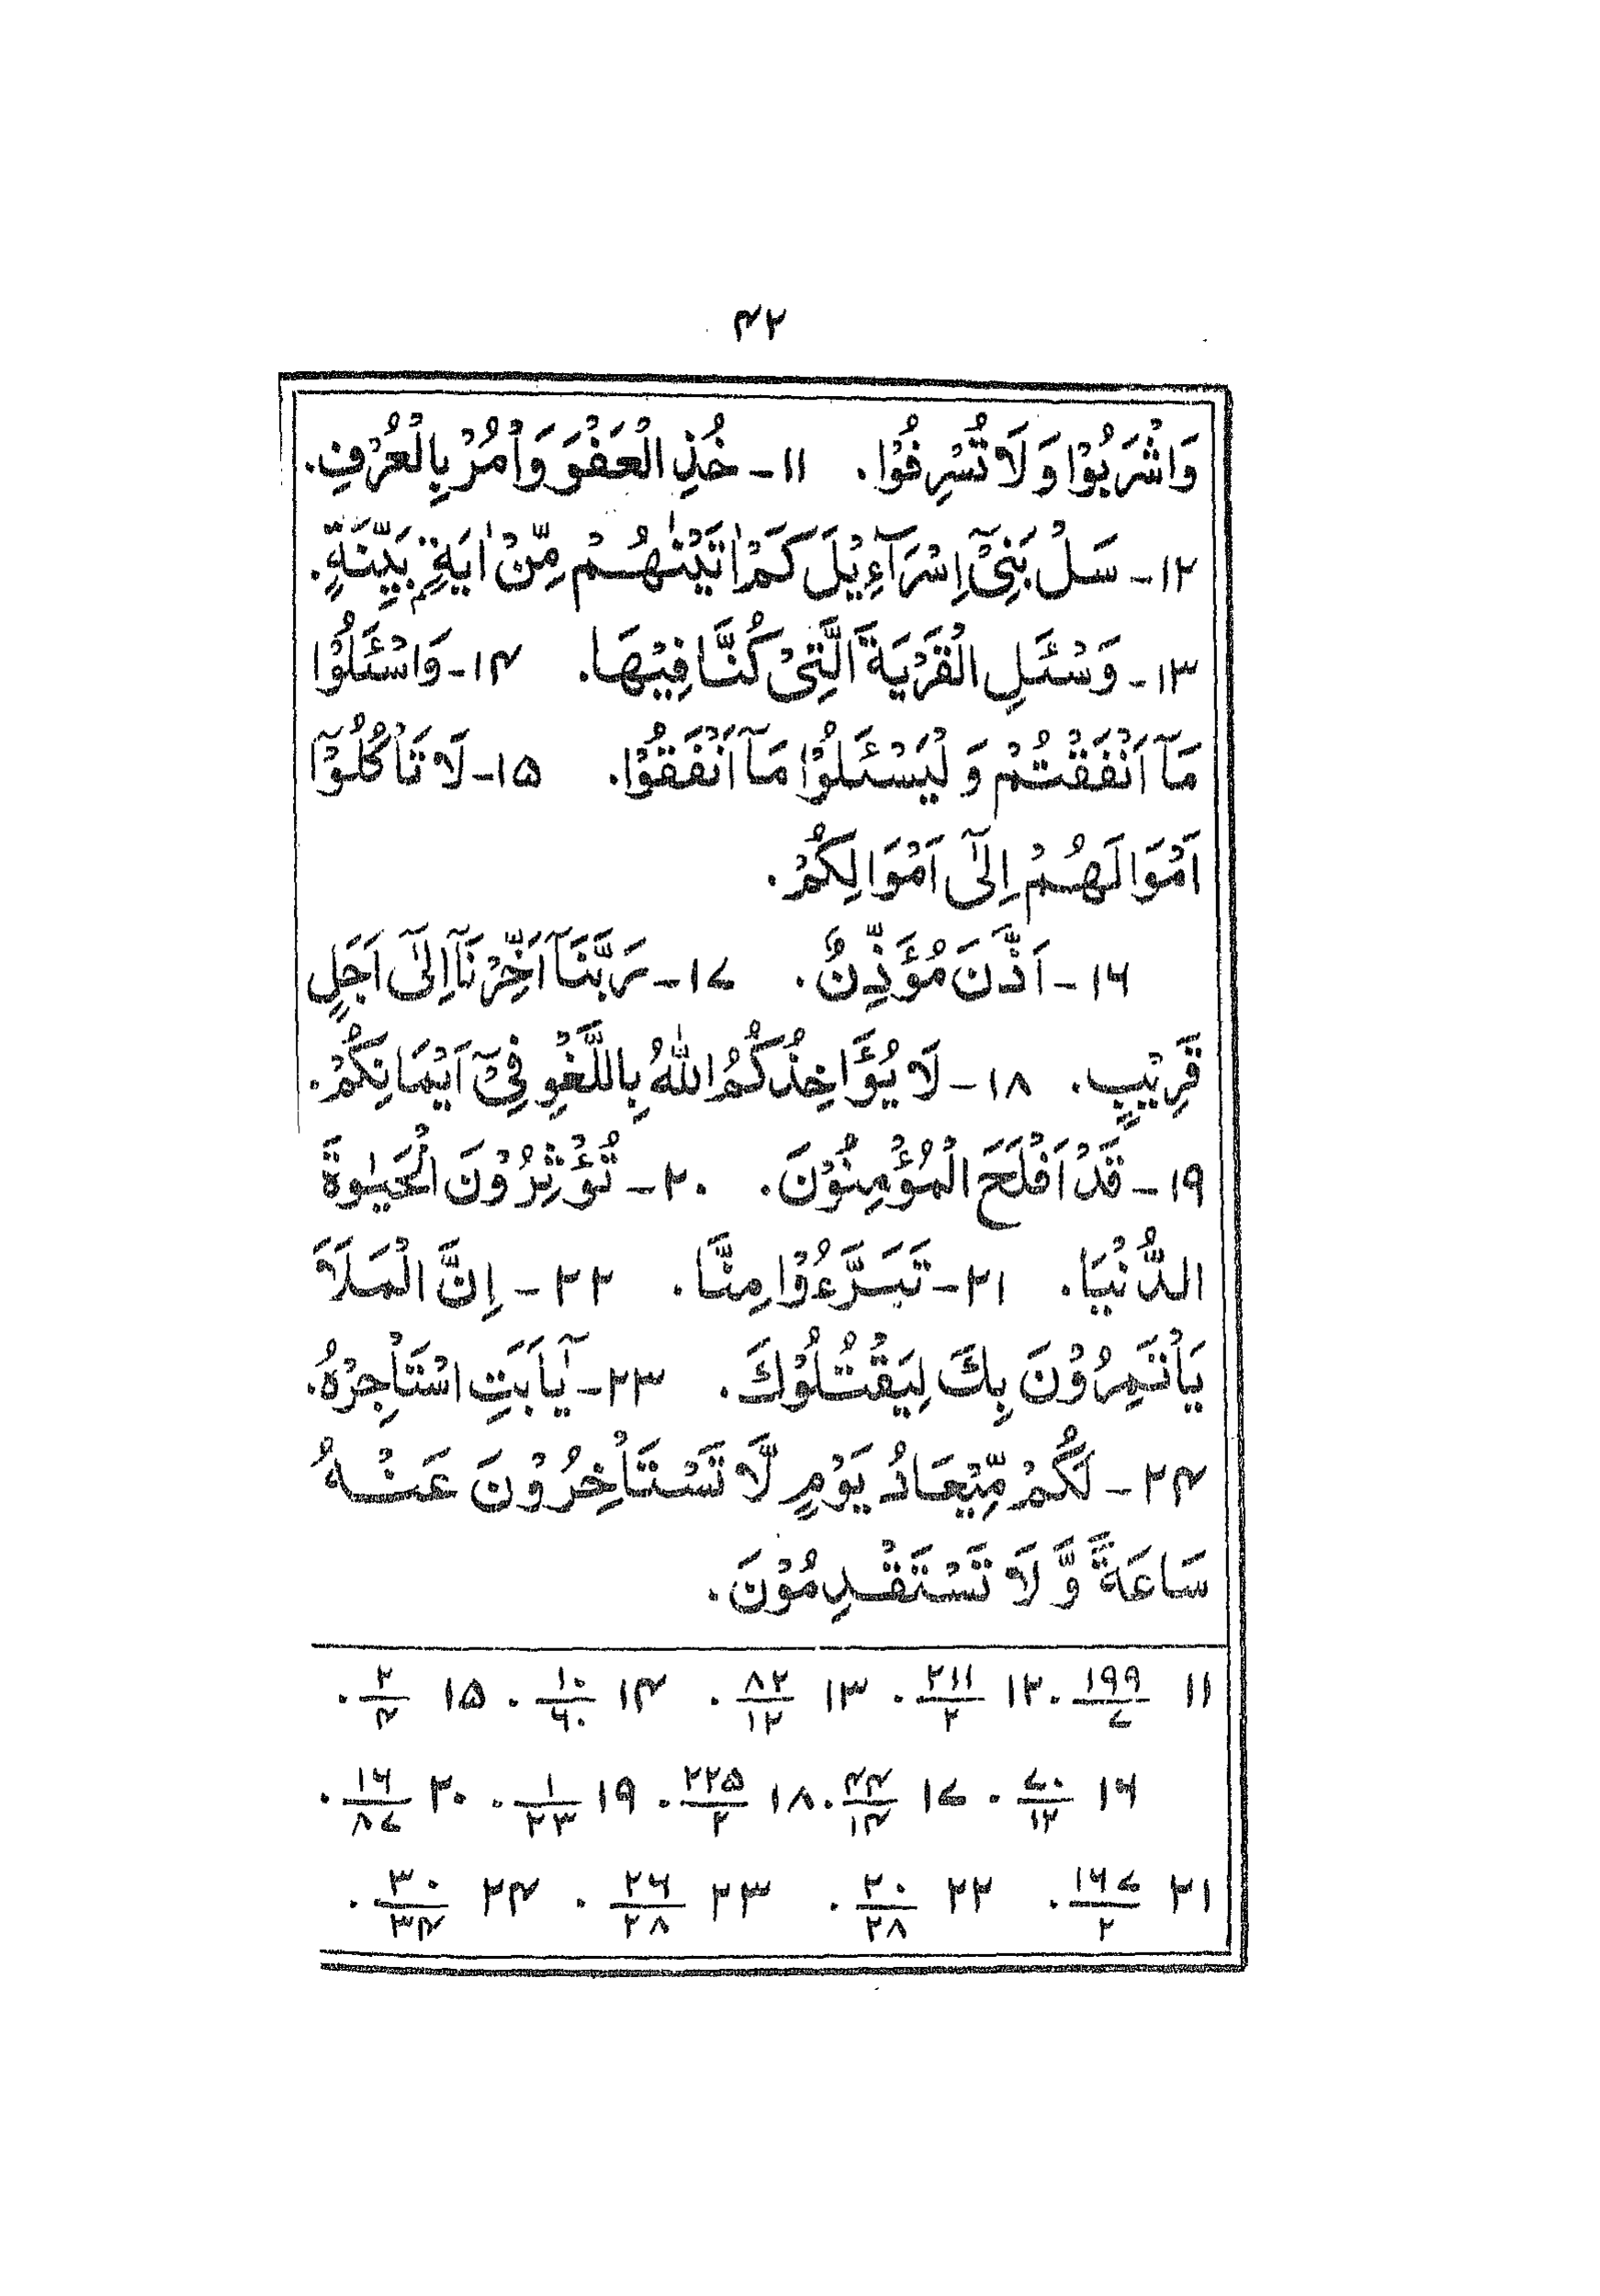 ۴۲
وَاشْرَبُوْا وَلَا تُسْرِفُوْا. ۱۱- خُذِ الْعَفْوَ وَاْمُرْ بِالْعُرْفِ.
۱۲- سَلْ بَنِیْٓ اِسْرَآءِیْلَ كَمْ اٰتَیْنٰهُمْ مِّنْ اٰیَةٍۭ بَیِّنَةٍ.
۱۳- وَسْئَلِ الْقَرْیَةَ الَّتِیْ كُنَّا فِیْهَا. ۱۴- وَاسْئَلُوْا
مَآ اَنْفَقْتُمْ وَ لْیَسْئَلُوْا مَآ اَنْفَقُوْا. ۱۵- لَا تَاْكُلُوْٓا
اَمْوَالَهُمْ اِلٰٓى اَمْوَالِكُمْ.
۱۶- اَذَّنَ مُؤَذِّنٌ. ۱۷- رَبَّنَآ اَخِّرْنَآ اِلٰٓى اَجَلٍ
قَرِیْبٍ. ۱۸- لَا یُؤَاخِذُكُمُ اللّٰهُ بِاللَّغْوِ فِیْٓ اَیْمَانِكُمْ.
۱۹- قَدْ اَفْلَحَ الْمُؤْمِنُوْنَ. ۲۰- تُؤْثِرُوْنَ الْحَیٰوةَ
الدُّنْیَا. ۲۱- تَبَرَّءُوْا مِنَّا. ۲۲- اِنَّ الْمَلَاَ
یَاْتَمِرُوْنَ بِكَ لِیَقْتُلُوْكَ. ۲۳- یٰٓاَبَتِ اسْتَاْجِرْهُ.
۲۴- لَكُمْ مِّیْعَادُ یَوْمٍ لَّا تَسْتَاْخِرُوْنَ عَنْهُ
سَاعَةً وَّ لَا تَسْتَقْدِمُوْنَ.
۱۱ ۱۹۹/۷. ۱۲ ۲۱۱/۲. ۱۳ ۸۲/۱۲. ۱۴ ۱۰/۶۰. ۱۵ ۲/۴.
۱۶ ۷۰/۱۲. ۱۷ ۴۴/۱۴. ۱۸ ۲۲۵/۲. ۱۹ ۱/۲۳. ۲۰ ۱۶/۸۷.
۲۱ ۱۶۷/۲. ۲۲ ۲۰/۲۸. ۲۳ ۲۶/۲۸. ۲۴ ۳۰/۳۴.